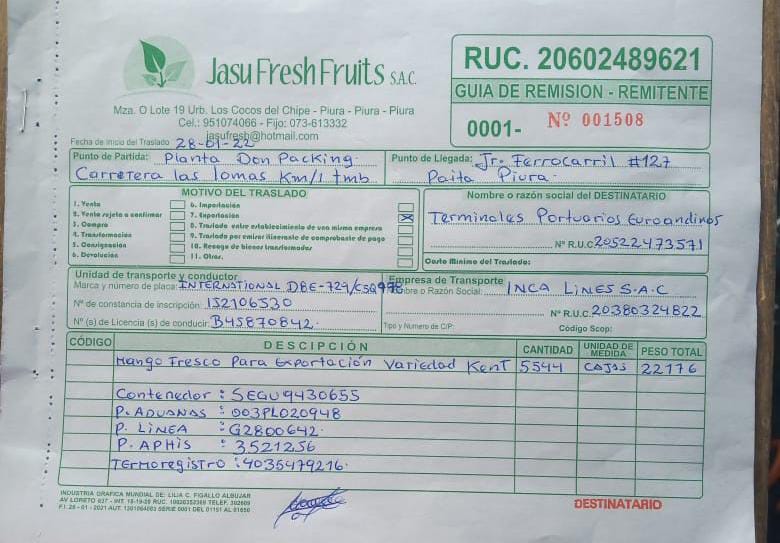 Jasu Fresh Fruits S.A.C.
Mza. O Lote 19 Urb. Los Cocos del Chipe - Piura - Piura - Piura
Cel.: 951074066 - Fijo: 073-613332
jasufresh@hotmail.com
RUC. 20602489621
GUIA DE REMISION - REMITENTE
0001- Nº 001508
Fecha de Inicio del Traslado 28-01-22
Punto de Partida: Planta Don Packing
Carretera las lomas Km/1 tmb
Punto de Llegada: Jr. Ferrocarril #127
Paita Piura.
MOTIVO DEL TRASLADO
1. Venta
2. Venta sujeta a confirmar
3. Compra
4. Transformación
5. Consignación
6. Devolución
6. Importación
7. Exportación X
8. Traslado entre establecimiento de una misma empresa
9. Traslado por emisor itinerante de comprobante de pago
10. Recogo de bienes transformados
11. Otros.
Nombre o razón social del DESTINATARIO
Terminales Portuarios Euroandinos
Nº R.U.C 20522473571
Costo Mínimo del Traslado:
Unidad de transporte y conductor
Marca y número de placa: INTERNATIONAL D8E-729/C5Q998
Nº de constancia de inscripción 152106530
Nº (s) de Licencia (s) de conducir: B45870842.
Empresa de Transporte
Nombre o Razón Social: INCA LINES S.A.C
Nº R.U.C. 20380324822
Tipo y Numero de C/P: Código Scop:
CÓDIGO DESCIPCIÓN CANTIDAD UNIDAD DE MEDIDA PESO TOTAL
Mango Fresco Para Exportación Variedad Kent 5544 CAJAS 22176
Contenedor : SEGU9430655
P. ADUANAS : 003PL020948
P. LINEA : G2800642.
P. APHIS : 3521256
Termoregistro : 4035479216.
INDUSTRIA GRAFICA MUNDIAL DE: LILIA C. FIGALLO ALBUJAR
AV LORETO 627 - INT. 18-19-20 RUC. TELEF. 302609
F.I. 28 - 01 - 2021 AUT. SERIE 0001 DEL 01151 AL 01650
DESTINATARIO